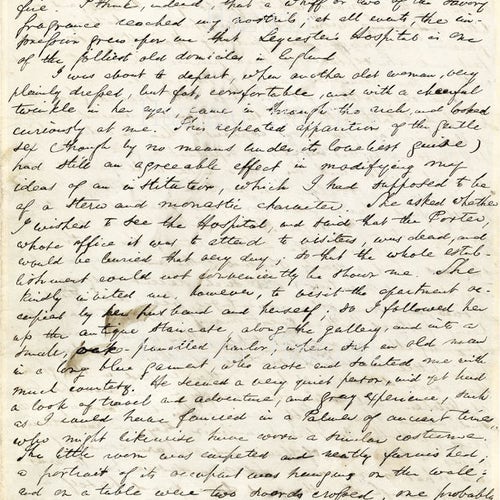 fire. I think, indeed, that a whiff or two of the savory
fragrance reached my nostrils; at all events, the im-
pression grew upon me that Leycester's Hospital is one
of the jolliest old domiciles in England.
I was about to depart, when another old woman, very
plainly dressed, but fat, comfortable, and with a cheerful
twinkle in her eyes, came in through the arch, and looked
curiously at me. This repeated apparition of the gentle
sex (though by no means under its loveliest guise)
had still an agreeable effect in modifying my
ideas of an institution, which I had supposed to be
of a stern and monastic character. She asked whether
I wished to see the Hospital, and said that the Porter,
whose office it was to attend to visitors, was dead, and
would be buried that very day; so that the whole estab-
lishment could not conveniently be shown me. She
kindly invited me, however, to visit the apartment oc-
cupied by her husband and herself; so I followed her
up the antique staircase, along the gallery, and into a
small, oak-panelled parlor, where sat an old man
in a long blue garment, who arose and saluted me with
much courtesy. He seemed a very quiet person, and yet had
a look of travel and adventure, and gray experience, such
as I could have fancied in a Palmer of ancient times,
who might likewise have worn a similar costume.
The little room was carpeted and neatly furnished;
a portrait of its occupant was hanging on the wall;
and on a table were two swords crossed, one probably